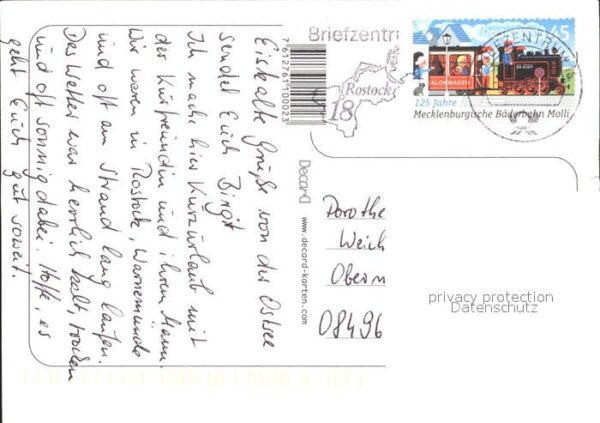 Eiskalte Grüße von der Ostsee
sendet Euch Birgit
Ich mach hier Kurzurlaub mit
der Kurfreundin und ihrem Mann.
Wir waren in Rostock, Warnemünde
und oft am Strand lang laufen.
Das Wetter war herrlich kalt, trocken
und oft sonnig dabei. Hoffe, es
geht Euch gut soweit.
7612761100023
Decard www.decard-karten.com
Briefzentr
Rostock
18
45
SALONWAGEN
99 2324
125 Jahre
Mecklenburgische Bäderbahn Molli
Dorothe
Weich
Oberm
08496
privacy protection
Datenschutz